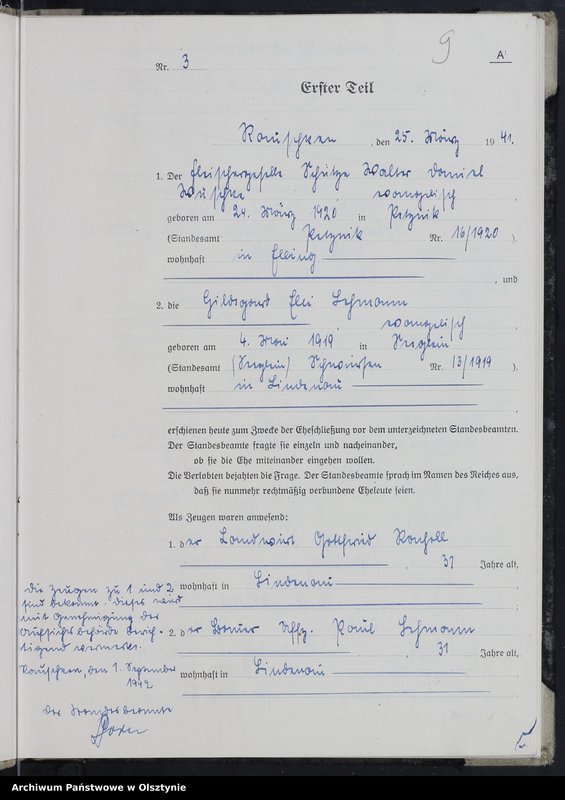 9
A¹
Nr. 3
Erster Teil
Rauschken, den 25. März 1941.
1. Der Fleischergeselle Schütze Walter Daniel
evangelisch,
geboren am 24. März 1920 in Petznik
(Standesamt Petznik Nr. 16/1920 ).
wohnhaft in Elbing
, und
2. die Hildegard Elli Lehmann
, evangelisch,
geboren am 4. Mai 1919 in
(Standesamt Nr. 13/1919 ).
wohnhaft in Lindenau
,
erschienen heute zum Zwecke der Eheschließung vor dem unterzeichneten Standesbeamten.
Der Standesbeamte fragte sie einzeln und nacheinander,
ob sie die Ehe miteinander eingehen wollen.
Die Verlobten bejahten die Frage. Der Standesbeamte sprach im Namen des Reiches aus,
daß sie nunmehr rechtmäßig verbundene Eheleute seien.
Als Zeugen waren anwesend:
1. der Landwirt Gottfried
, 31 Jahre alt,
wohnhaft in Lindenau
;
2. der Bauer Paul Lehmann
, 31 Jahre alt,
wohnhaft in Lindenau
Die Zeugen zu 1 und 2
sind bekannt. Dieses wird
mit Genehmigung der
Aufsichtsbehörde berich-
tigend vermerkt.
Rauschken, den 1. September
1942
Der Standesbeamte
Archiwum Państwowe w Olsztynie